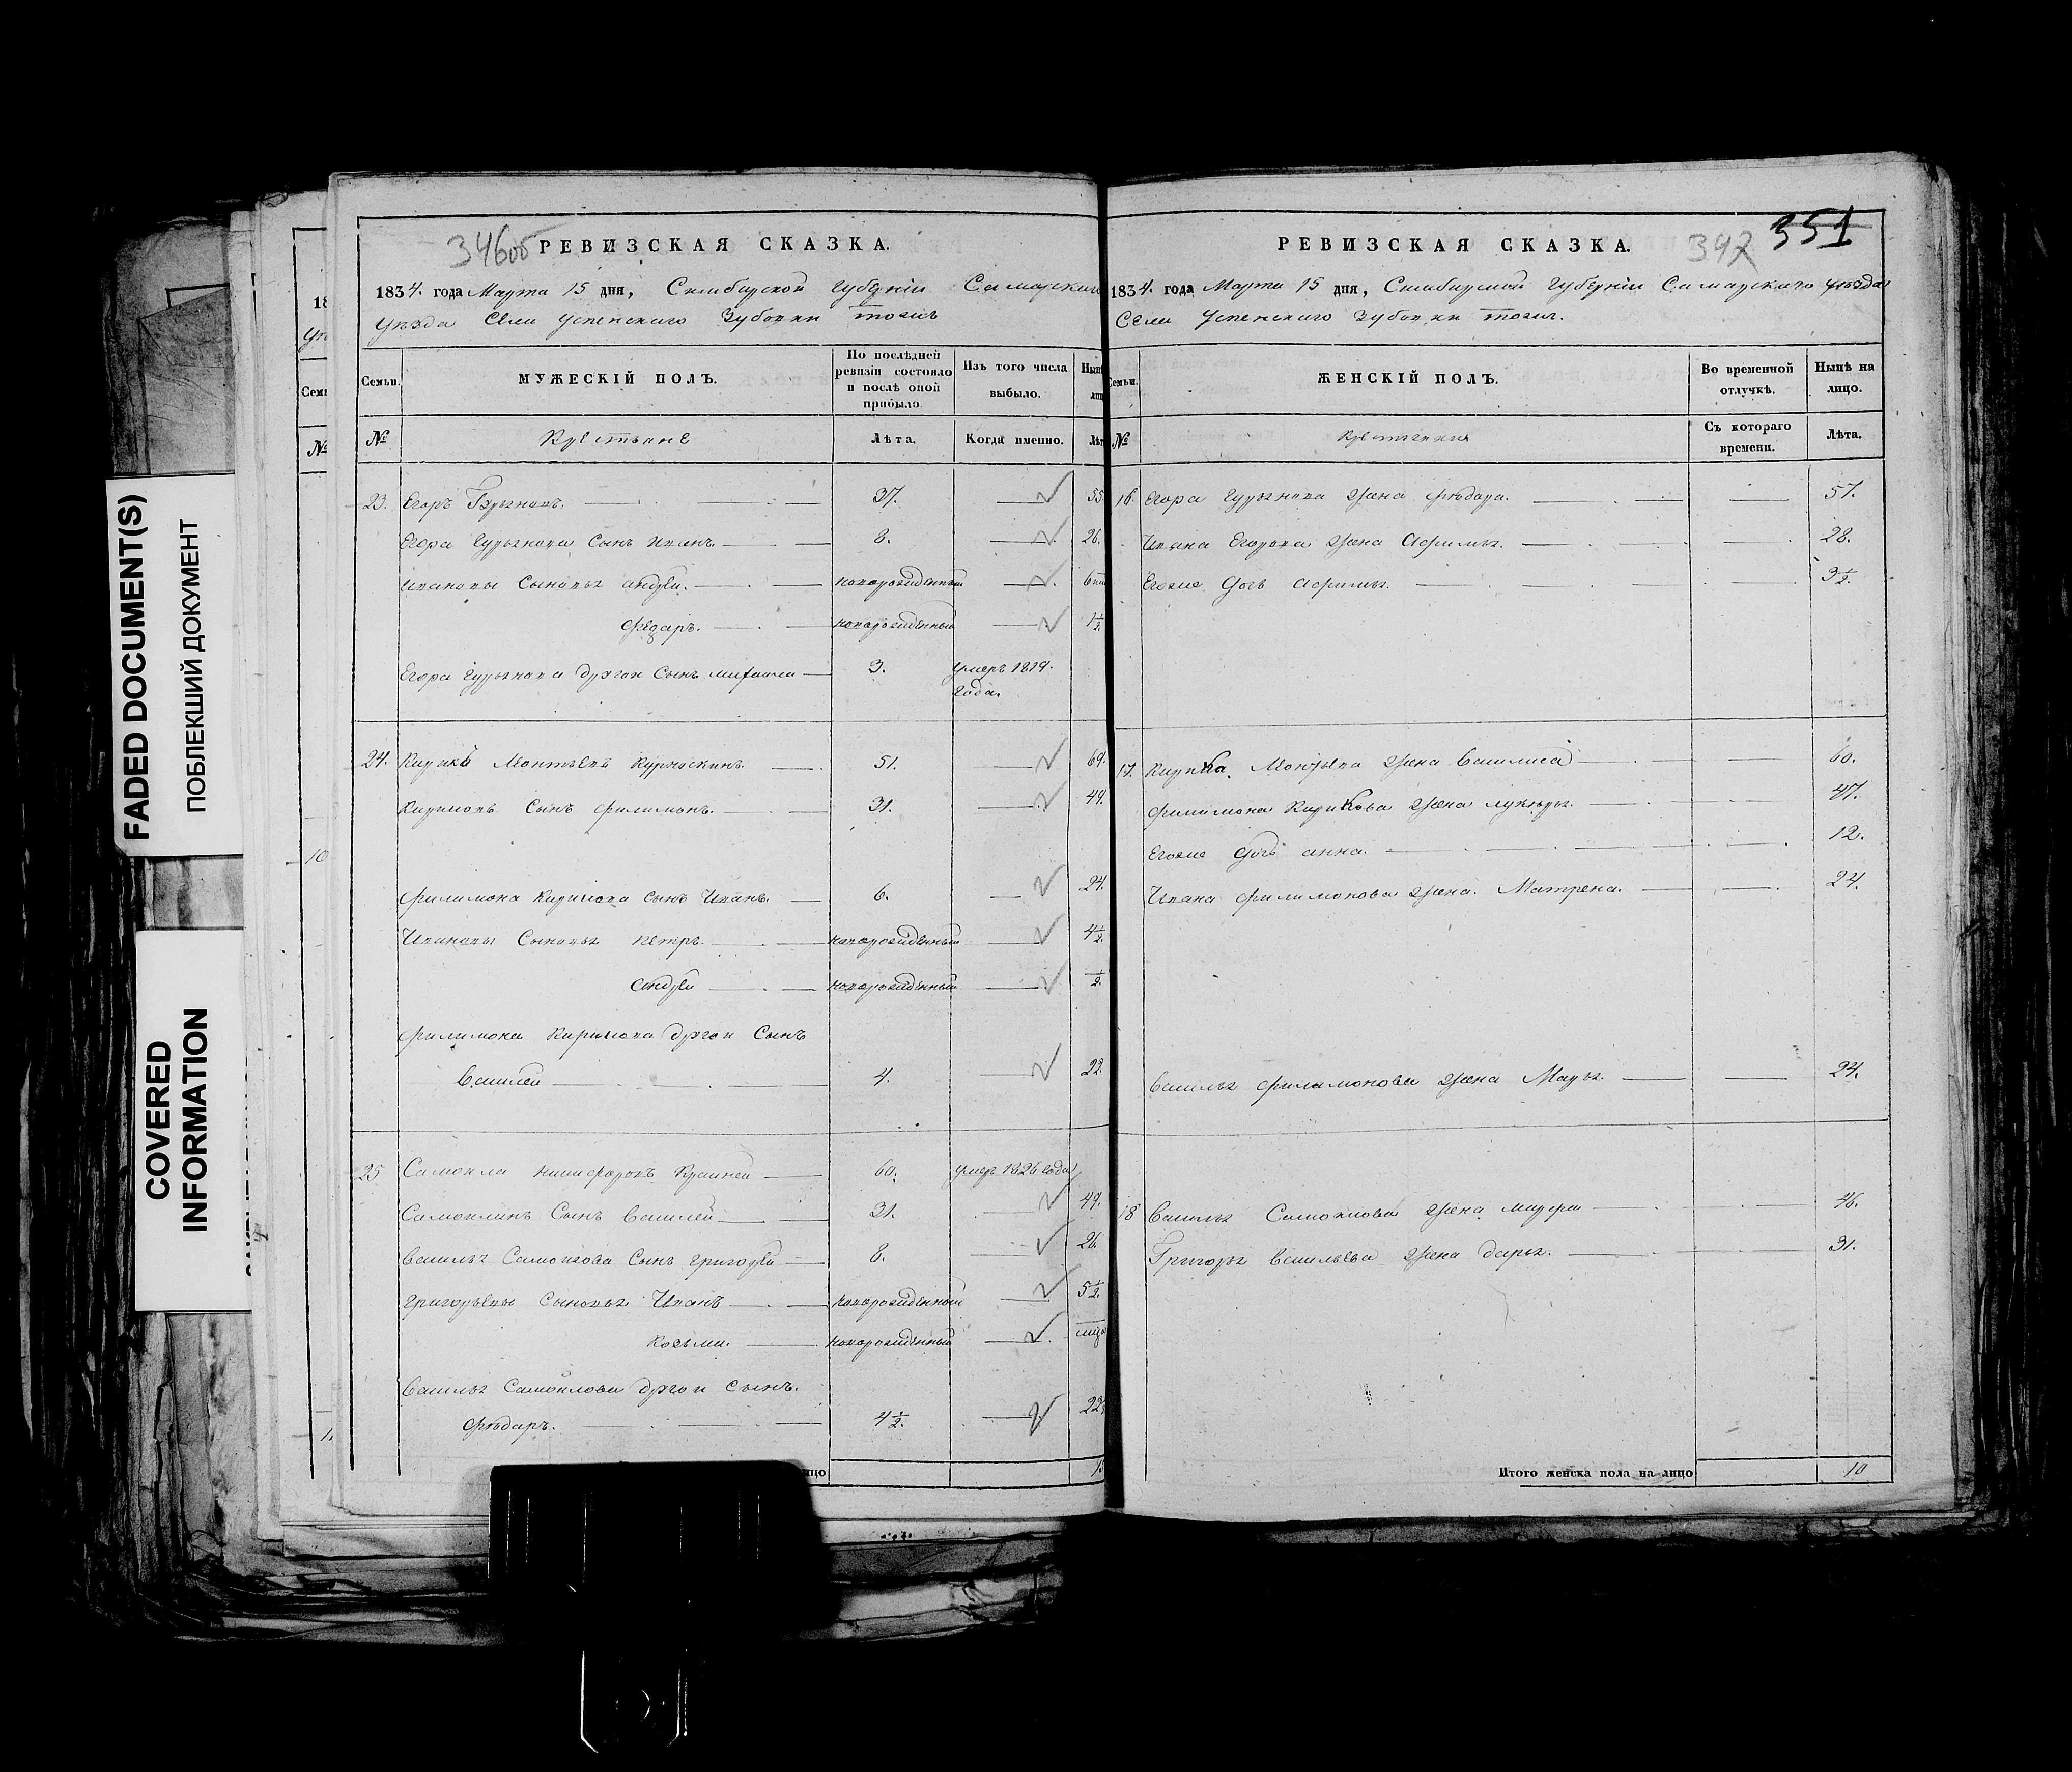 FADED DOCUMENT(S)
ПОБЛЕКШИЙ ДОКУМЕНТ
COVERED
INFORMATION
346об
РЕВИЗСКАЯ СКАЗКА.
1834. года Марта 15 дня, Симбирской Губерніи Самарскаго
Уѣзда Села Успенскаго Зубовки тожъ
Семьи.
МУЖЕСКІЙ ПОЛЪ.
По послѣдней
ревизіи состояло
и послѣ оной
прибыло.
Изъ того числа
выбыло.
№
Крестьяне
Лѣта.
Когда именно.
23. Егоръ Гурьяновъ. 37. 55
Егора Гурьянова Сынъ Иванъ. 8. 26.
Ивановы Сыновья андрей. новорожденный 6
Федаръ. новорожденный 1½
Егора Гурьянова другой Сынъ михаила 3. умеръ 1819.
года.
24. Леонтьевъ 51. 69.
Сынъ филимонъ. 31. 49.
филимона Сынъ Иванъ. 6. 24.
Ивановы Сыновья петръ новорожденный 4½
андрей новорожденный ½
филимона другой Сынъ
Василей 4. 22.
25 Самойла никифоровъ 60. умеръ 1826 года
Самойлинъ Сынъ Василей 31. 49.
Василья Самойлова Сынъ григорей 8. 26.
григорьевы Сыновья Иванъ новорожденный 5½
Козьма. новорожденный
Василья Самойлова другой Сынъ.
Фѣодаръ. 4½. 22½
лицо
РЕВИЗСКАЯ СКАЗКА.
347
351
1834. года Марта 15 дня, Симбирской Губерніи Самарскаго уѣзда
Села Успенскаго Зубовки тожъ.
Семьи.
ЖЕНСКІЙ ПОЛЪ.
Во временной
отлучкѣ.
Нынѣ на
лицо.
№
Съ котораго
времени.
Лѣта.
16 Егора Гурьянова жена фѣодора. 57.
Ивана Егорова жена Афимья. 28.
Егоже дочь Афимья. 3½
17. жена Василиса 60.
филимона жена лукерья. 47.
Егоже дочь анна. 12.
Ивана филимонова жена Матрена. 24.
Василья филимонова жена Марья. 24.
18 Василья Самойлова жена 46.
Григорья Васильева жена дарья. 31.
Итого женска пола на лицо 10